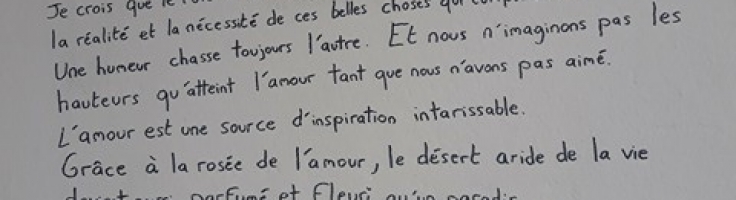 Je crois que le
la réalité et la nécessité de ces belles choses qui
Une humeur chasse toujours l'autre. Et nous n'imaginons pas les
hauteurs qu'atteint l'amour tant que nous n'avons pas aimé.
L'amour est une source d'inspiration intarissable.
Grâce à la rosée de l'amour, le désert aride de la vie
parfumé et fleuri qu'un paradis